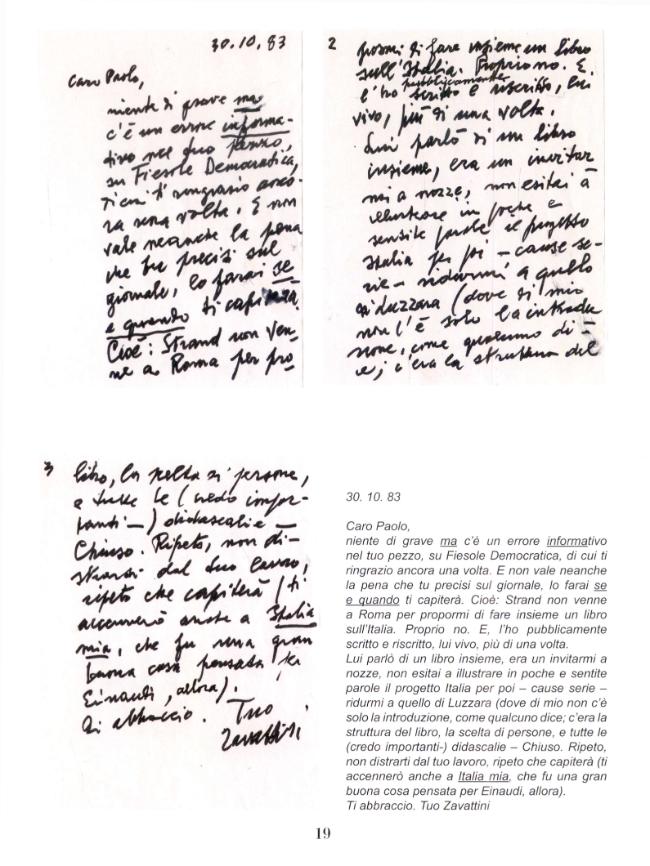 30.10.83
Caro Paolo,
niente di grave ma
c'è un errore informa-
tivo nel tuo pezzo,
su Fiesole Democratica,
di cui ti ringrazio anco-
ra una volta. E non
vale neanche la pena
che tu precisi sul
giornale, lo farai se
e quando ti capiterà.
Cioè: Strand non ven-
ne a Roma per pro
2
pormi di fare insieme un libro
sull'Italia. Proprio no. E,
l'ho pubblicamente scritto e riscritto, lui
vivo, più di una volta.
Lui parlò di un libro
insieme, era un invitar
mi a nozze, non esitai a
illustrare in poche e
sentite parole il progetto
Italia per poi – cause se-
rie – ridurmi a quello
di Luzzara (dove di mio
non c'è solo la introdu
zione, come qualcuno di-
ce; c'era la struttura del
3
libro, la scelta di persone,
e tutte le (credo impor-
tanti –) didascalie –
Chiuso. Ripeto, non di-
strarti dal tuo lavoro,
ripeto che capiterà (ti
accennerò anche a Italia
mia, che fu una gran
buona cosa pensata per
Einaudi, allora).
Ti abbraccio. Tuo
Zavattini
30. 10. 83
Caro Paolo,
niente di grave ma c'è un errore informativo
nel tuo pezzo, su Fiesole Democratica, di cui ti
ringrazio ancora una volta. E non vale neanche
la pena che tu precisi sul giornale, lo farai se
e quando ti capiterà. Cioè: Strand non venne
a Roma per propormi di fare insieme un libro
sull'Italia. Proprio no. E, l'ho pubblicamente
scritto e riscritto, lui vivo, più di una volta.
Lui parlò di un libro insieme, era un invitarmi a
nozze, non esitai a illustrare in poche e sentite
parole il progetto Italia per poi – cause serie –
ridurmi a quello di Luzzara (dove di mio non c'è
solo la introduzione, come qualcuno dice; c'era la
struttura del libro, la scelta di persone, e tutte le
(credo importanti-) didascalie – Chiuso. Ripeto,
non distrarti dal tuo lavoro, ripeto che capiterà (ti
accennerò anche a Italia mia, che fu una gran
buona cosa pensata per Einaudi, allora).
Ti abbraccio. Tuo Zavattini
19